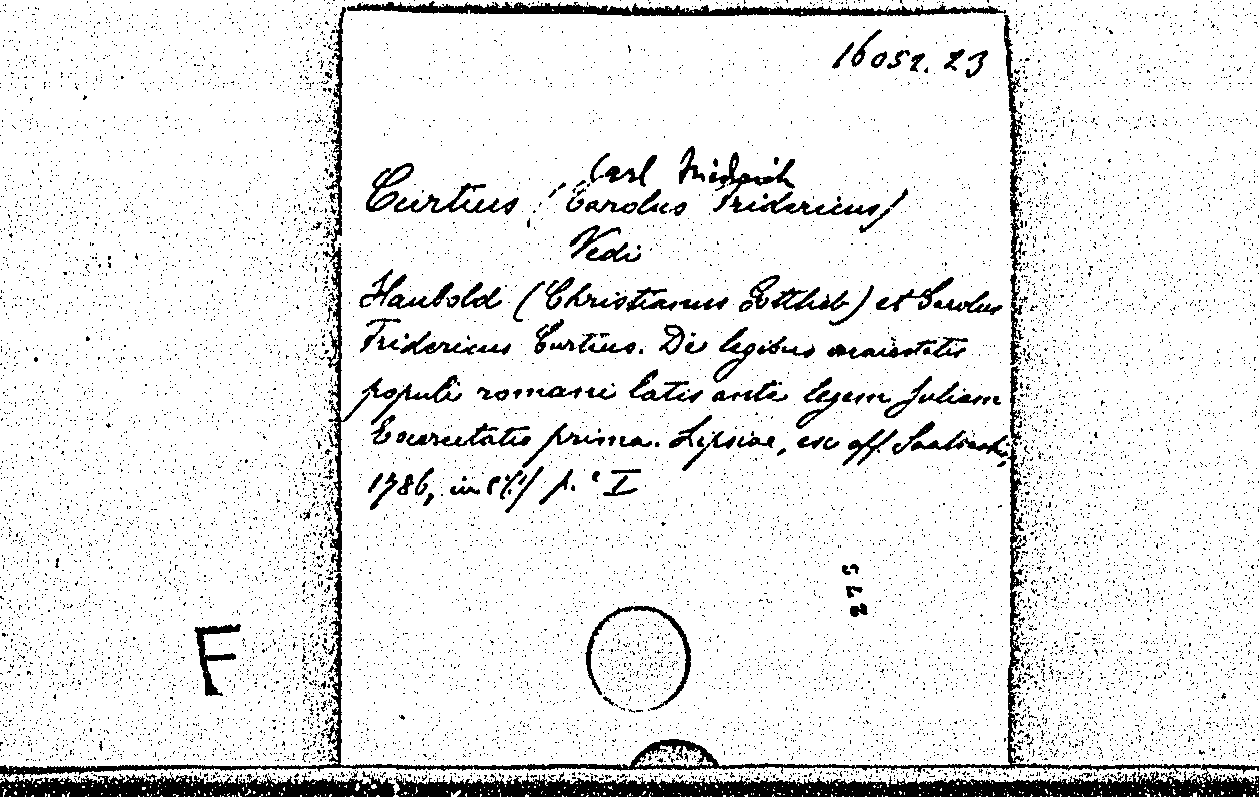 16052.23
Carl Friedrich
Curtius, (Carolus Fridericus)
Vedi
Haubold (Christianus Gottlieb) et Carolus
Fridericus Curtius. De legibus maiestatis
populi romani latis ante legem Juliam
Exercitatio prima. Lipsiae, ex off. Saalbach,
1786, in 8(?) p. I
275
F